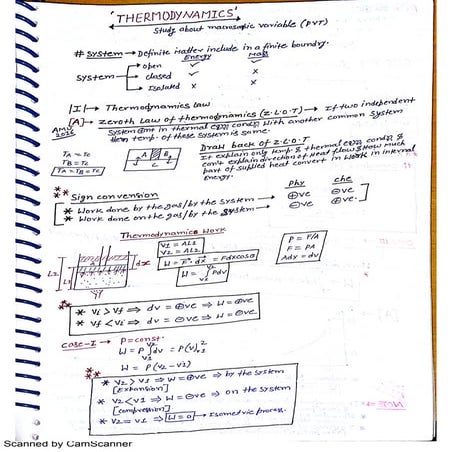 'THERMODYNAMICS'
→ Study about macroscopic variable (PVT)
# System → Definite Matter include in a finite boundry.
Energy Mass
System → open ✓ ✓
→ closed ✓ ×
→ Isolated × ×
|I| → Thermodynamics law
[A] → Zeroth Law of thermodynamics (Z.L.O.T) → If two independent
system are in thermal with another common system
then temp. of these system is same.
TA = TC
TB = TC
TA = TB = TC
A C B
Draw back of Z.L.O.T
It explain only temp. & thermal &
can't explain direction of Head flow & How much
part of supplied heat convert in Work in internal
energy.
** Sign convension
Phy che
* Work done by the gas/by the system → ⊕ve ⊖ve
* Work done on the gas/by the system → ⊖ve ⊕ve
Thermodynamics Work
V1 = AL1
V2 = AL2
W = F.dx = Fdxcosθ
W = ∫ Pdv
V2
V1
P = F/A
F = PA
Adx = dv
dx
L2
L1
**
* Vi > Vf ⇒ dv = ⊕ve ⇒ W = ⊕ve
* Vf < Vi ⇒ dv = ⊖ve ⇒ W = ⊖ve
Case-I → P = const.
W = P ∫ dv = P(v)
W = P (V2 - V1)
**
* V2 > V1 ⇒ W = ⊕ve → by the system
[Expansion]
* V2 < V1 ⇒ W = ⊖ve → on the system
[compression]
* V2 = V1 ⇒ W = 0 → Isometric process.
Scanned by CamScanner